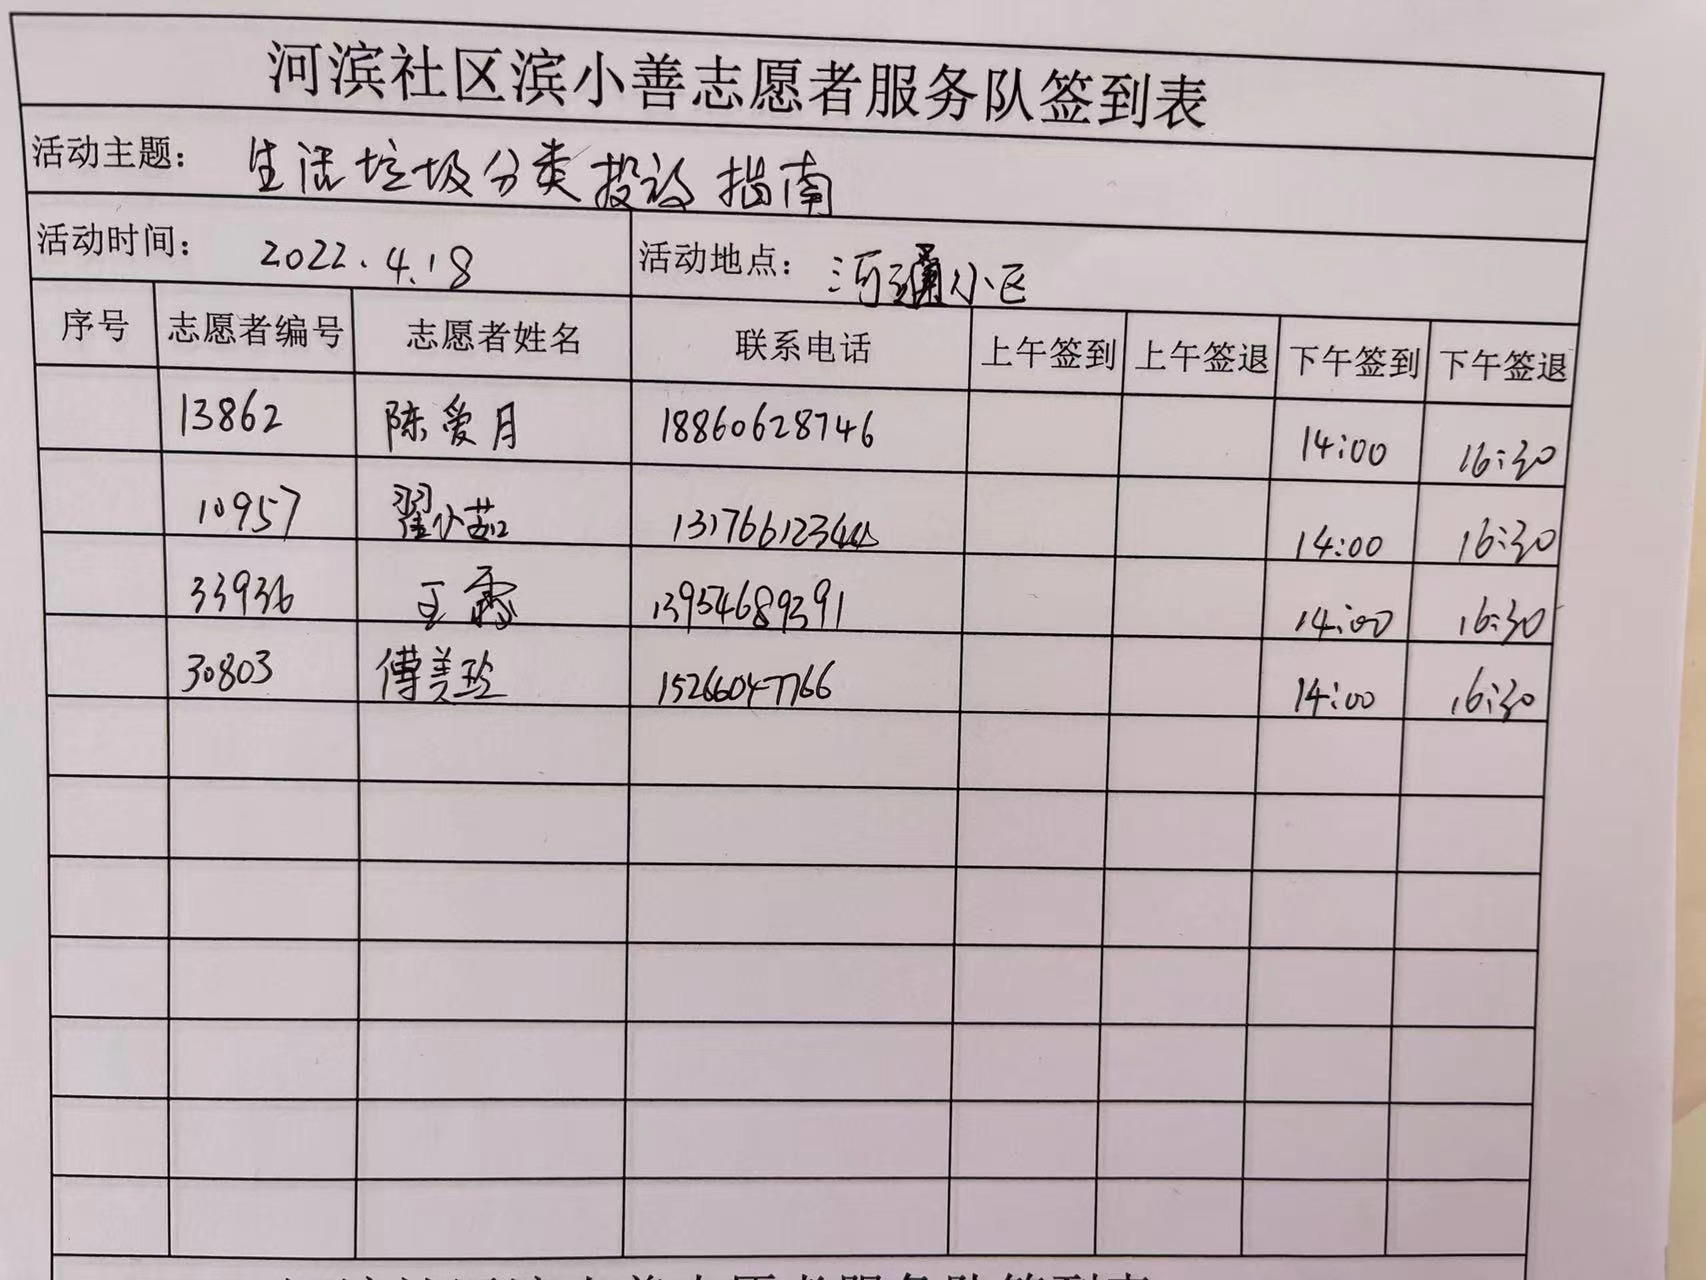 河滨社区滨小善志愿者服务队签到表
活动主题： 生活垃圾分类投放指南
活动时间： 2022.4.18 活动地点： 河通小区
序号 志愿者编号 志愿者姓名 联系电话 上午签到 上午签退 下午签到 下午签退
13862 陈爱月 18860628746 14:00 16:30
10957 翟小茹 13176612344 14:00 16:30
33936 王霞 13954689391 14:00 16:30
30803 傅美玲 15266047766 14:00 16:30